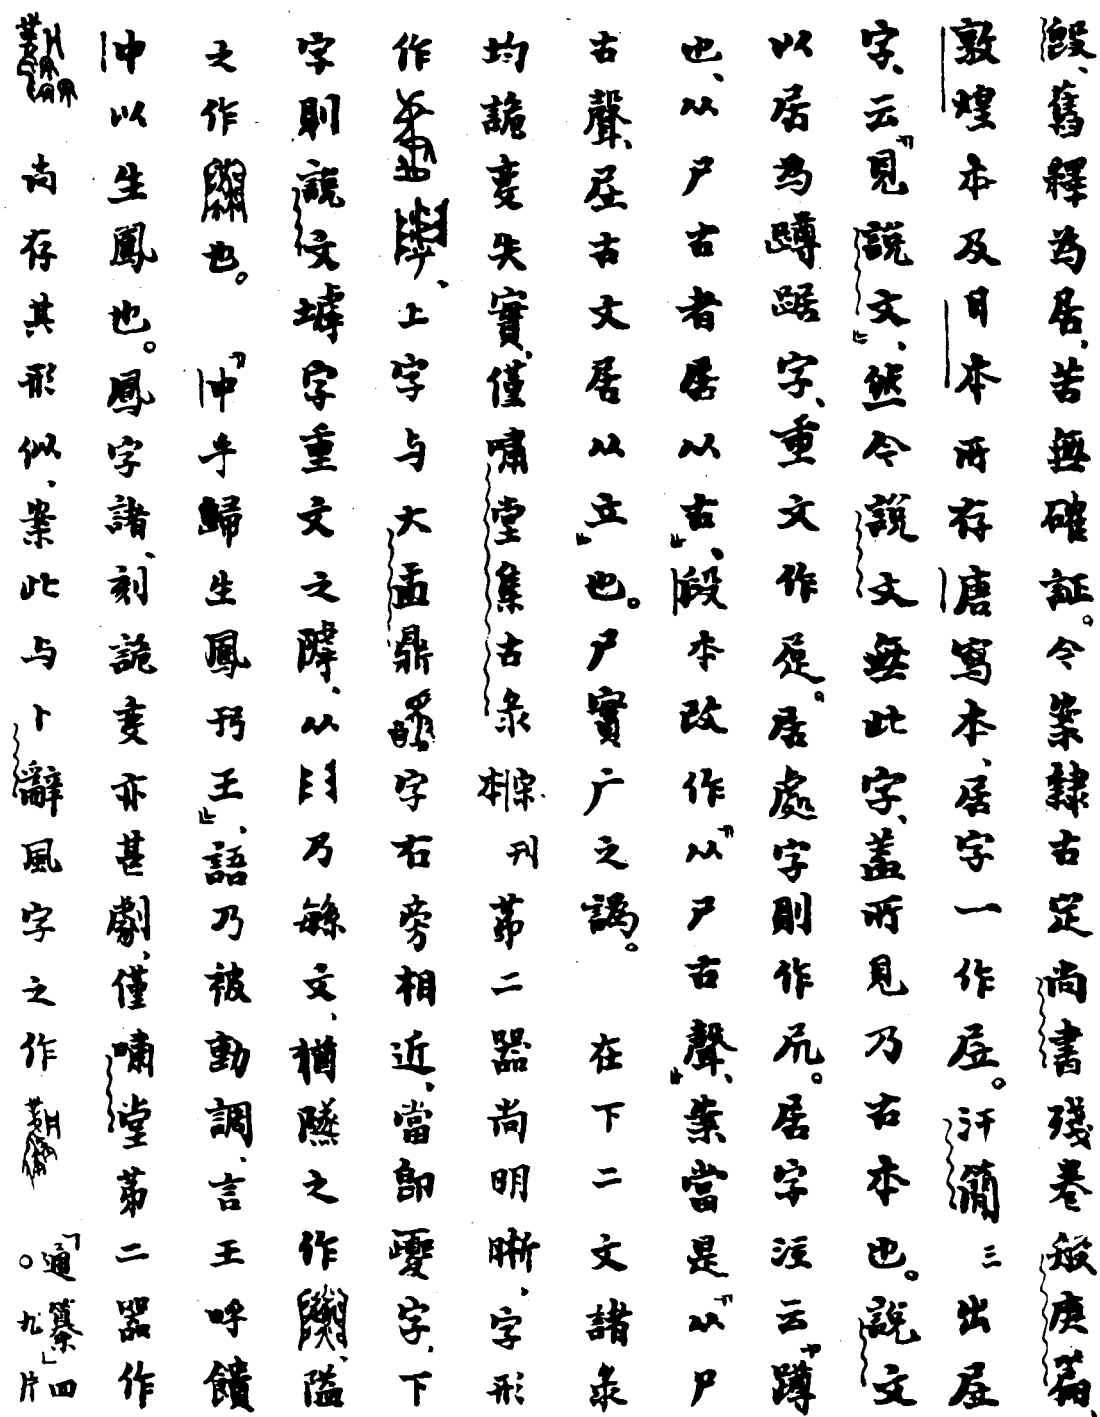 㲃、舊釋為居，苦無確証。今案隸古定尚書殘卷般庚篇，
敦煌本及日本所存唐寫本，居字一作㞐。汗簡三出㞐
字，云『見說文』，然今說文無此字，蓋所見乃古本也。說文
以居為蹲踞字，重文作𡰥。居處字則作凥。居字注云『蹲
也，从尸古者居从古』，段本改作『从尸古聲』，案當是『从尸
古聲，㞐古文居从立』也。尸實广之譌。　在下二文諸彔
均詭變失實，僅嘯堂集古彔宋刊本第二器尚明晰，字形
作　，上字与大盂鼎　字右旁相近，當即夒字，下
字則說文㙤字重文之隓，从𨸏乃緐文，猶隧之作　，隘
之作　也。『中乎歸生鳳㺇王』，語乃被動調，言王呼饋
中以生鳳也。鳳字諸刻詭變亦甚劇，僅嘯堂第二器作
　尚存其形似，案此与卜辭風字之作　『通纂』四九片。